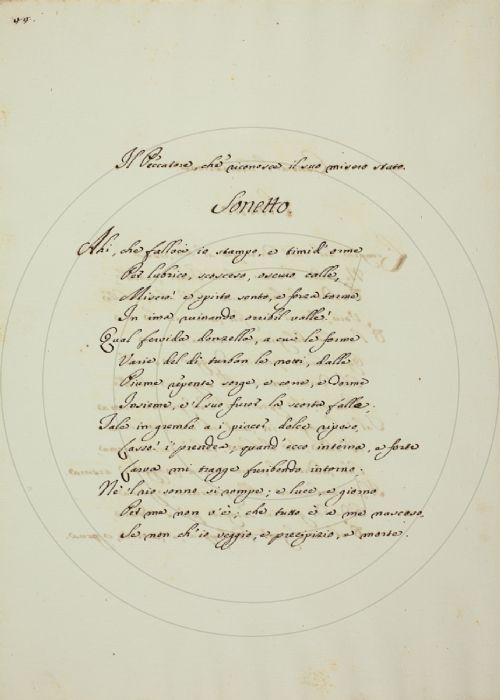 99.
Il Peccatore, che riconosce il suo misero stato.
Sonetto.
Ahi, che fallaci io stampo, e timid' orme
Per lubrico, scosceso, oscuro calle,
Misero! e spirto sento, e forza torme
In ima ruinando orribil valle!
Qual fervida donzella, a cui le forme
Varie del dì turban le notti, dalle
Piume repente sorge, e corre, e dorme
Insieme, e 'l suo furor la scorta falle;
Tale in grembo a i piacer dolce riposo,
Lasso! i' prendea; quand' ecco interna, e forte
Larva mi tragge furibondo intorno.
Nè 'l rio sonno si rompe; e luce, e giorno
Per me non v'è; che tutto è a me nascoso,
Se non ch' io veggio, e precipizio, e morte.